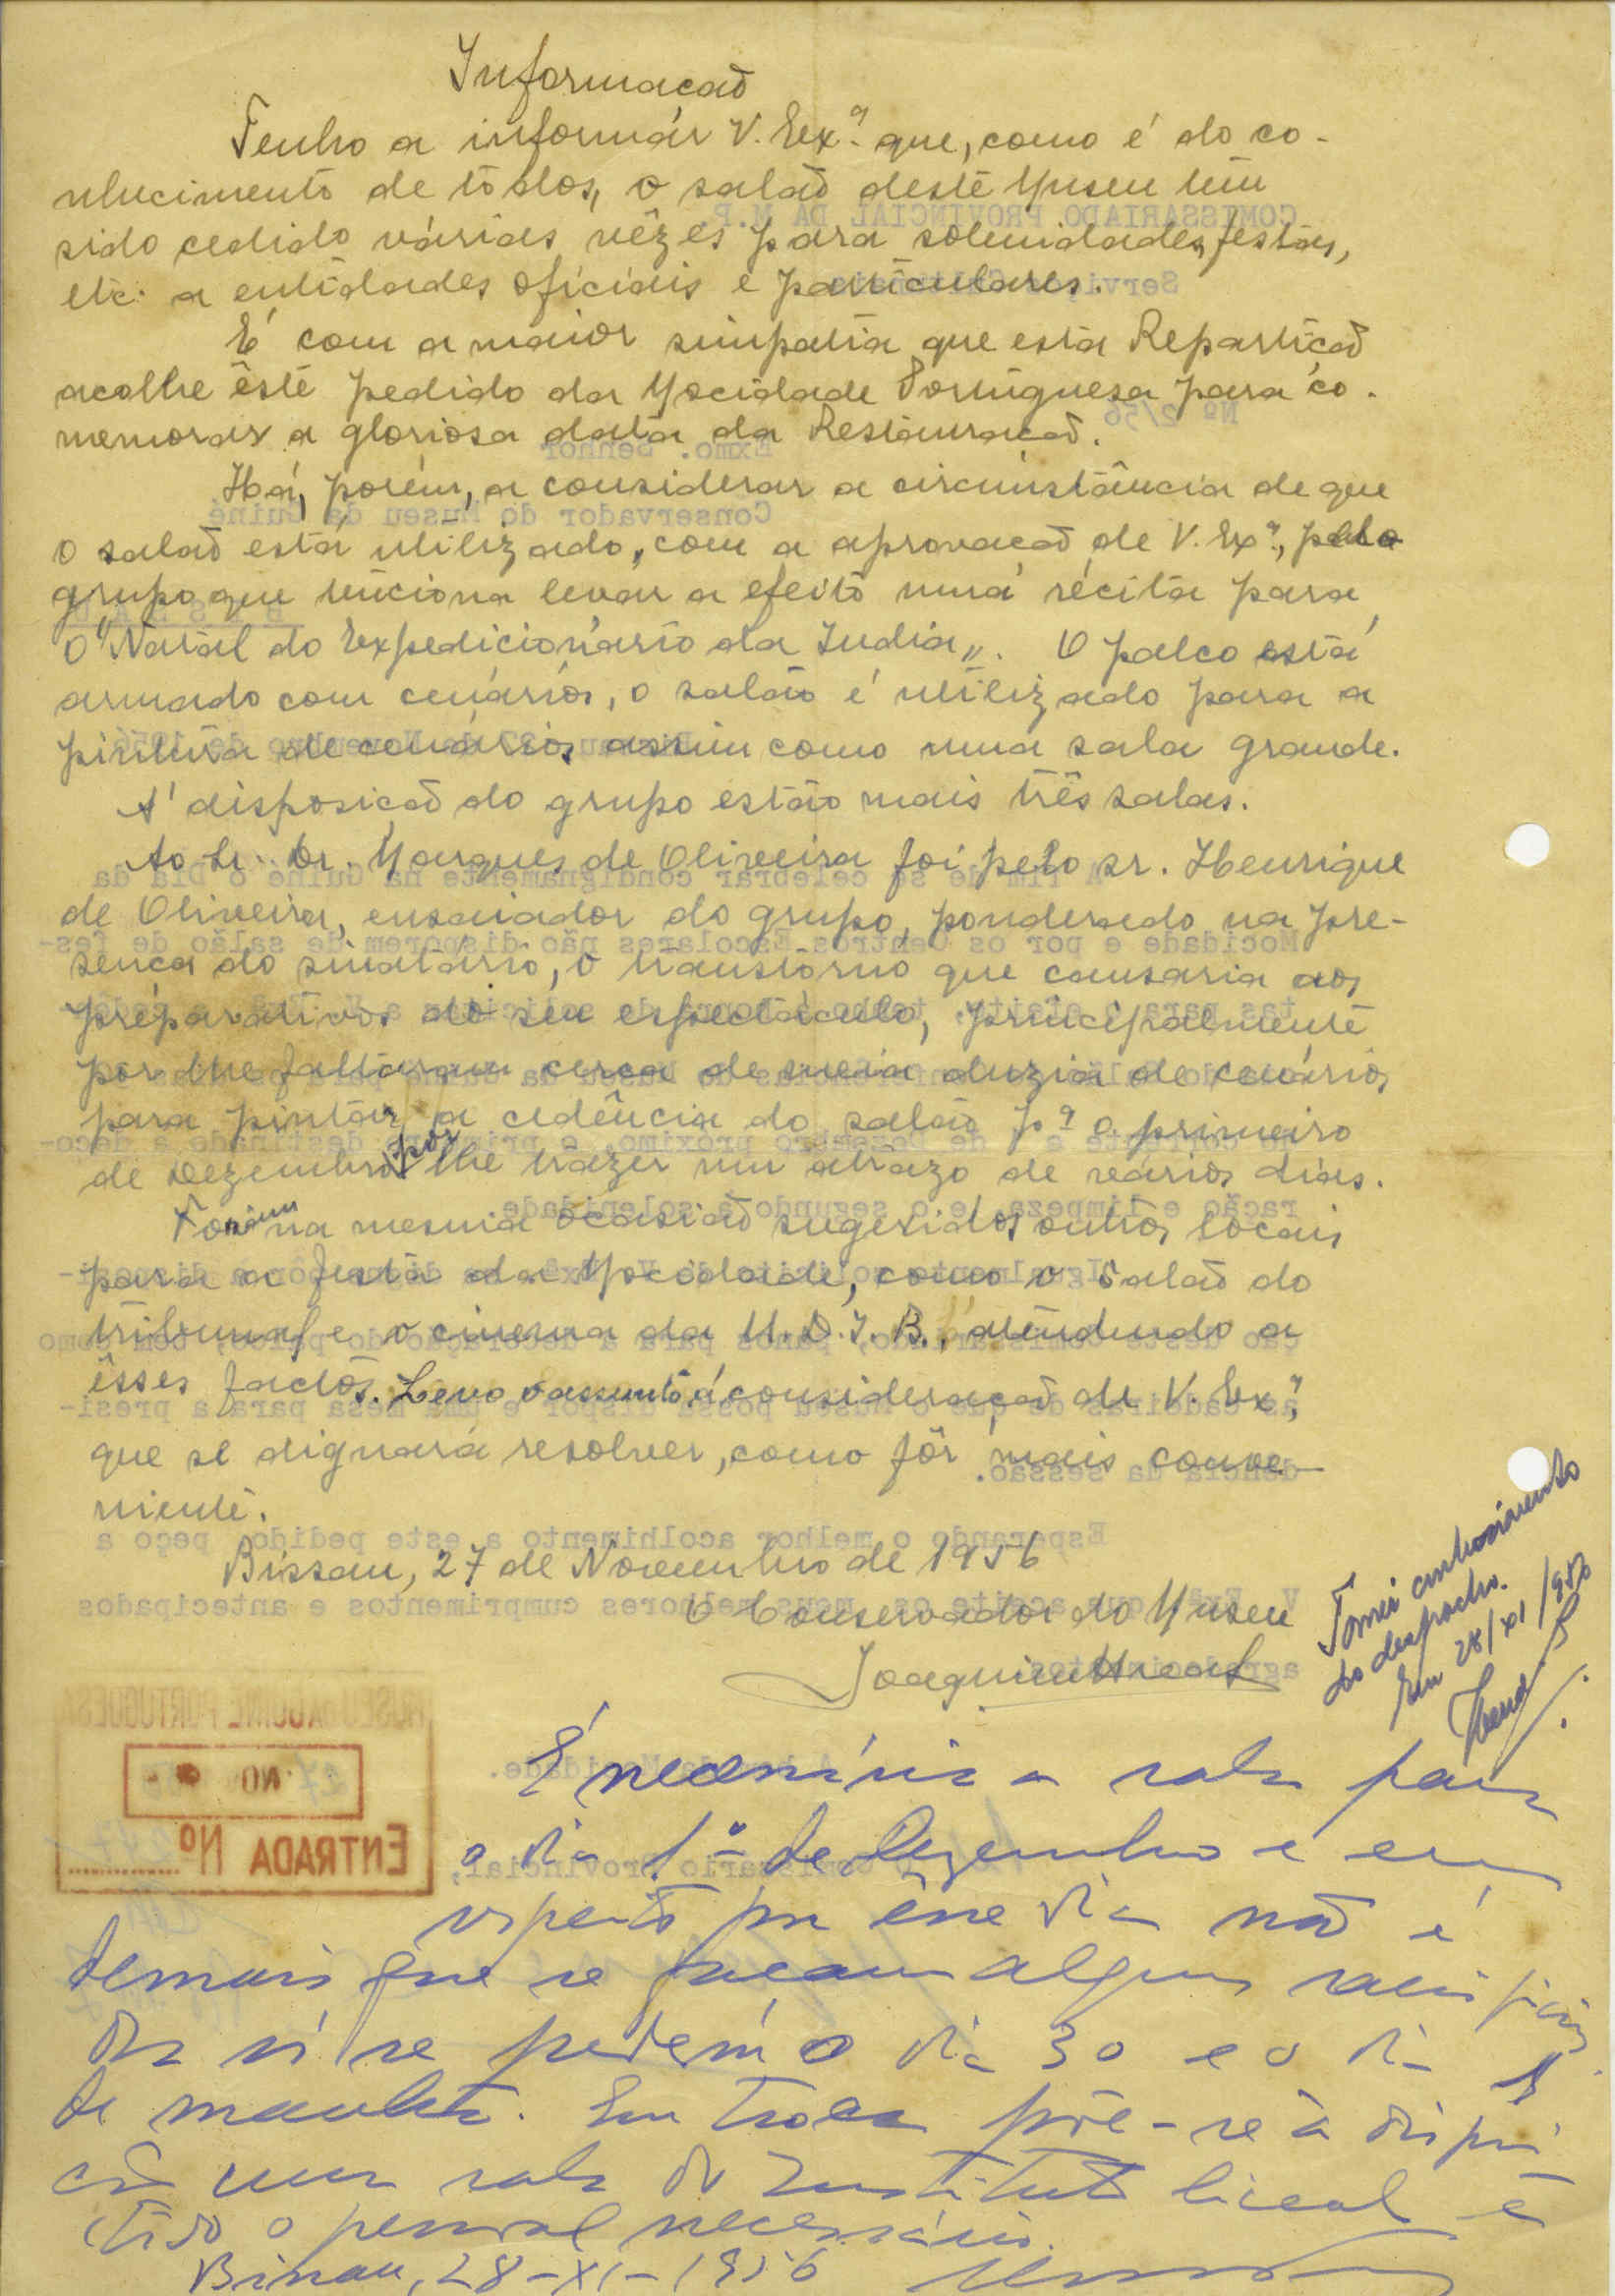 Informação
Tenho a informár V. Exª. que, como é do co-
nhecimento de tôdos, o salão deste Museu tem
sido cedido várias vêzes para solenidades, festas,
etc. a entidades oficiais e particulares.
É com a maior simpatia que esta Repartição
acolhe êste pedido da Mocidade Portuguesa para co-
memorar a gloriosa data da Restauração.
Há, porém, a considerar a circunstância de que
o salão está utilizado, com a aprovação de V. Exª., pelo
grupo que tenciona levar a efeito uma récita para
o "Natal do Expedicionário da India". O palco está
armado com cenários, o salão é utilizado para a
pintura de cenários, assim como uma sala grande.
A' disposição do grupo estão mais três salas.
Ao Sr. Dr. Marques de Oliveira foi pelo sr. Henrique
de Oliveira, ensaiador do grupo, ponderado na pre-
sença do sinatário, o transtorno que causaria aos
preparativos do seu espectáculo, principalmente
por lhe faltarem cerca de meia duzia de cenários
para pintar, a cedência do salão pª o primeiro
de Dezembro, por lhe trazer um atrazo de vários dias.
Foram na mesma ocasião sugeridos outros locais
para a festa da Mocidade, como o salão do
tribunal e o cinema da U.D.I.B., atendendo a
êsses factos. Levo o assunto á consideração de V. Exª.,
que se dignará resolver, como fôr mais conve-
niente.
Bissau, 27 de Novembro de 1956
O Conservador do Museu
Joaquim Areal
Tomei conhecimento
do despacho.
Em 28/XI/1956
É necessária a sala para
o dia 1º de Dezembro e em
respeito por êsse dia não é
demais que se façam alguns sacrifícios
Da sí se perderá o dia 30 e o dia 1
de manhã. Em troca põe-se à disposi
ção uma sala do Instituto liceal e
todo o pessoal necessário.
Bissau, 28-XI-1956
MUSEU DA GUINÉ PORTUGUESA
27 NOV
ENTRADA Nº